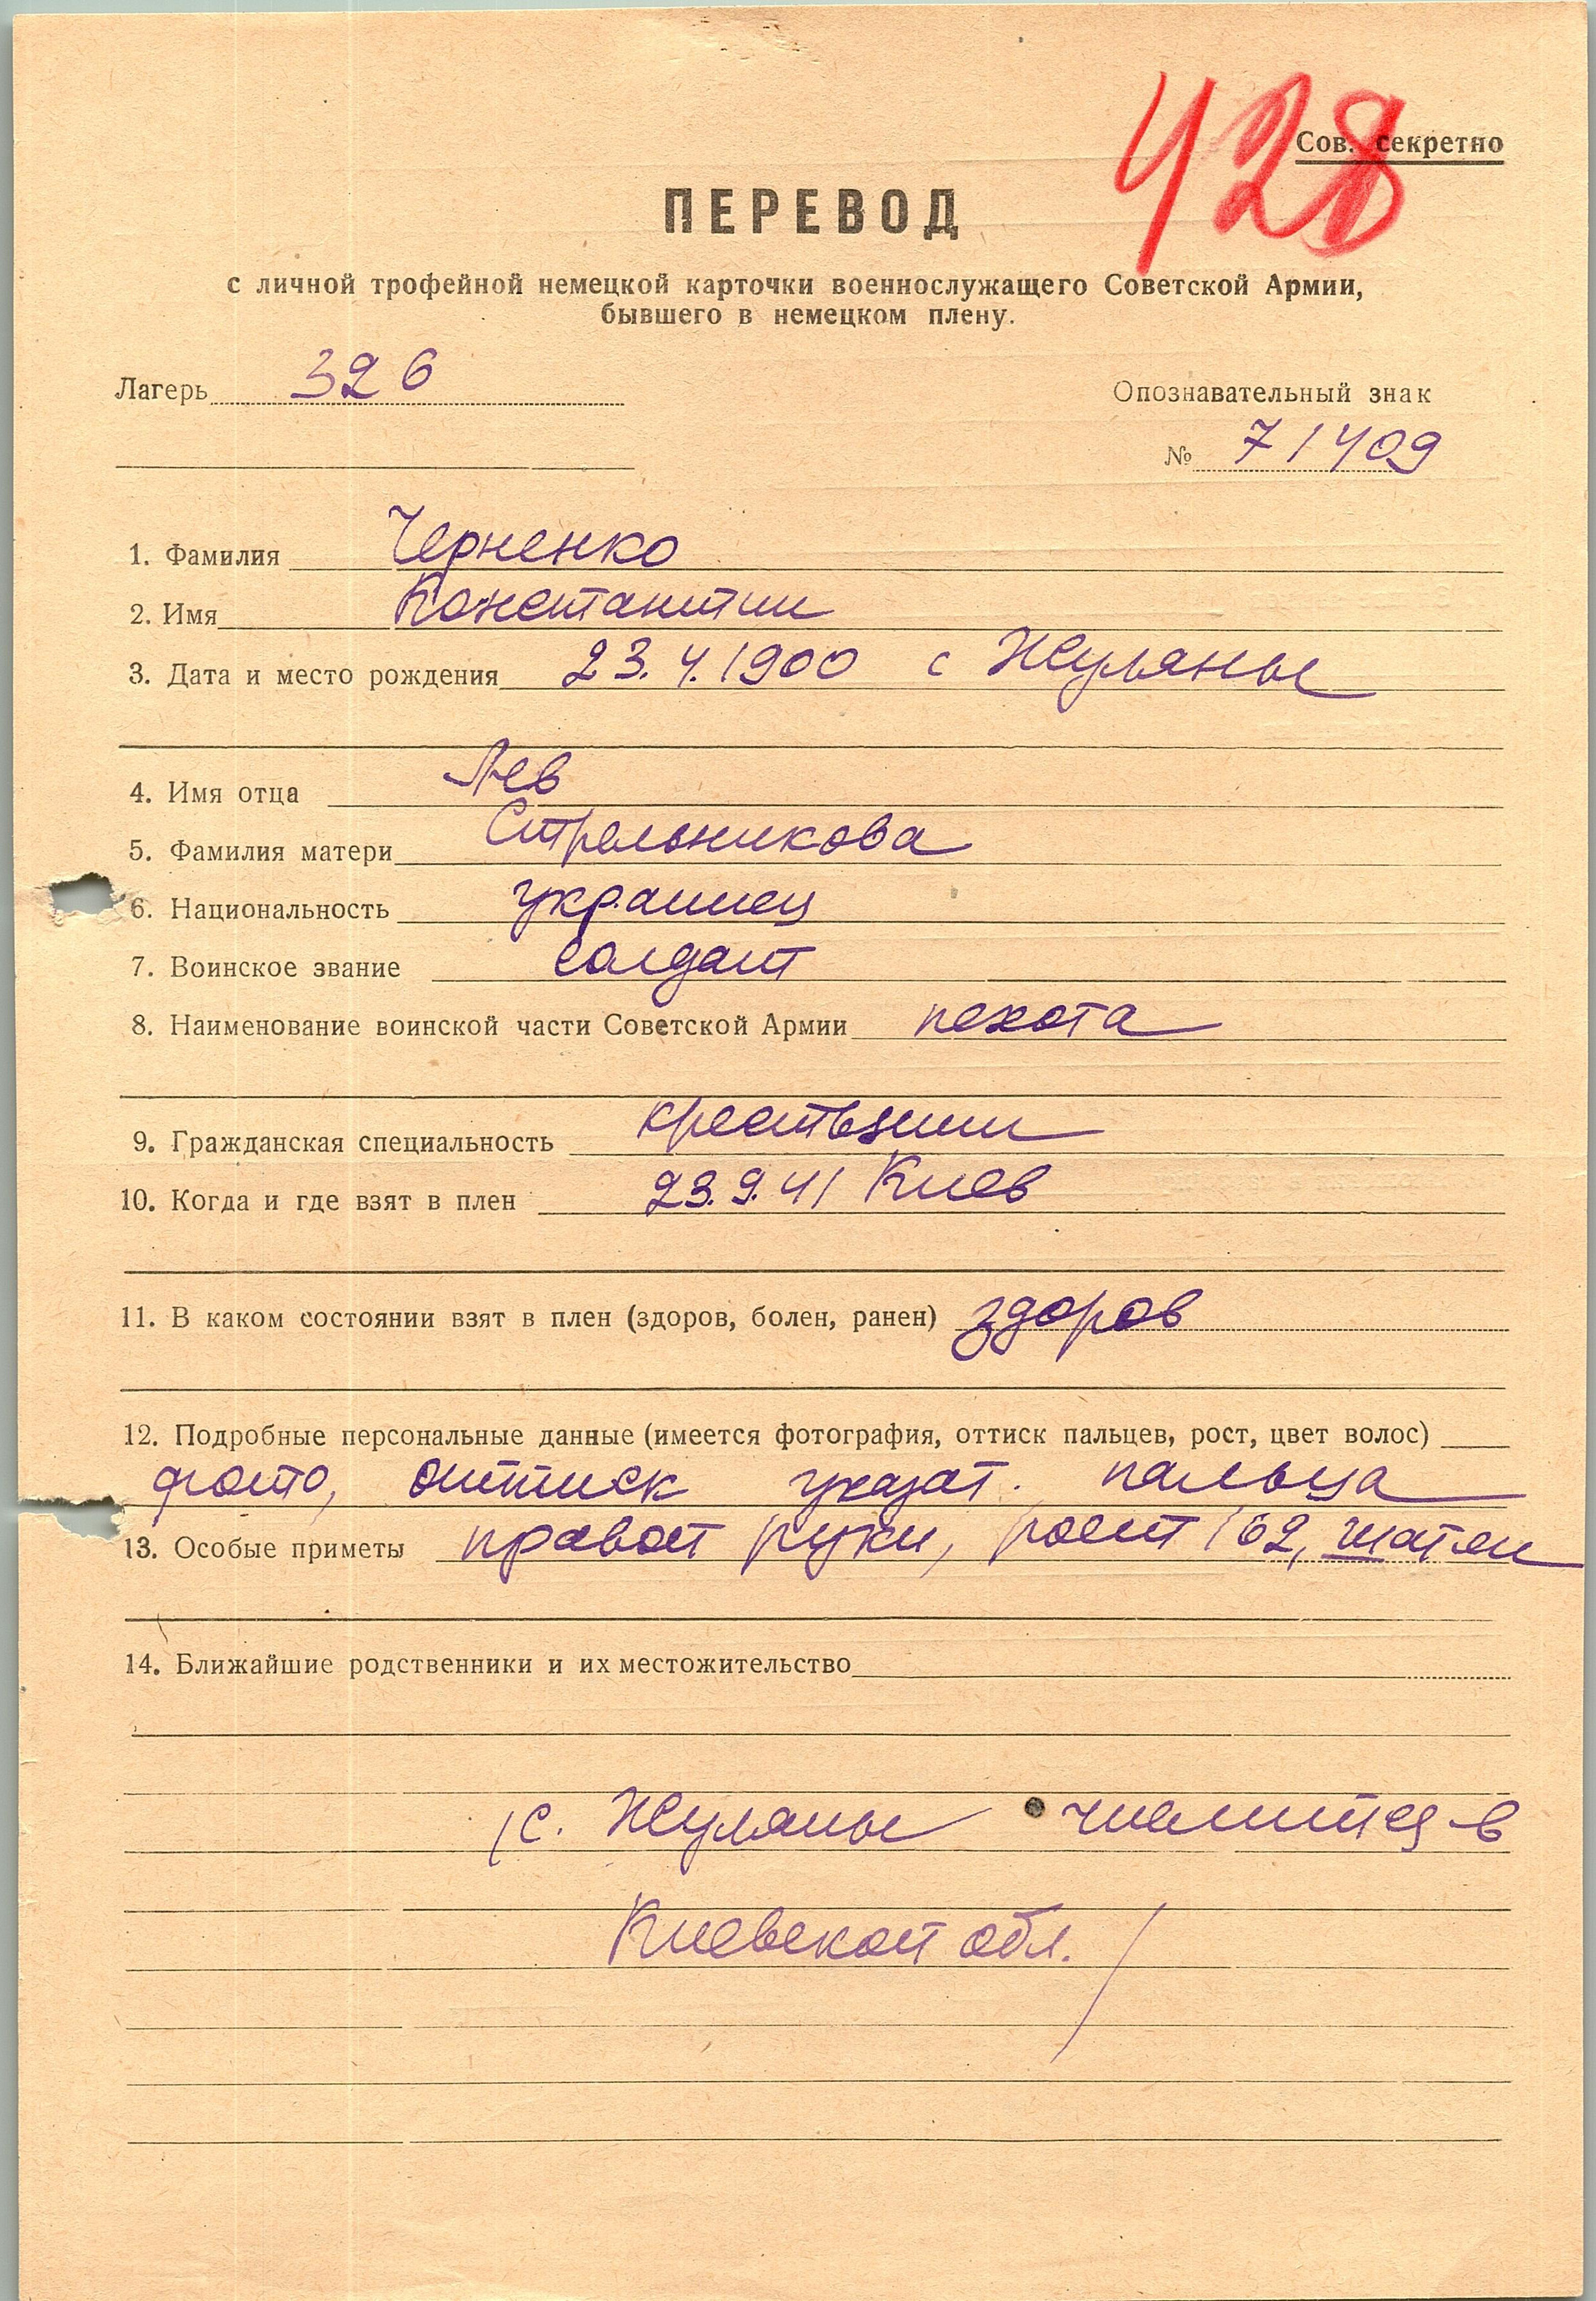 428
Сов. секретно
ПЕРЕВОД
с личной трофейной немецкой карточки военнослужащего Советской Армии,
бывшего в немецком плену.
Лагерь 326
Опознавательный знак
№ 71409
1. Фамилия Черненко
2. Имя Константин
3. Дата и место рождения 23.4.1900 с Жуляны
4. Имя отца Лев
5. Фамилия матери Стрельникова
6. Национальность украинец
7. Воинское звание солдат
8. Наименование воинской части Советской Армии пехота
9. Гражданская специальность крестьянин
10. Когда и где взят в плен 23.9.41 Киев
11. В каком состоянии взят в плен (здоров, болен, ранен) здоров
12. Подробные персональные данные (имеется фотография, оттиск пальцев, рост, цвет волос)
фото, оттиск указат. пальца
13. Особые приметы правой руки, рост 162, шатен
14. Ближайшие родственники и их местожительство
/с. Жуляны числится в
Киевской обл./